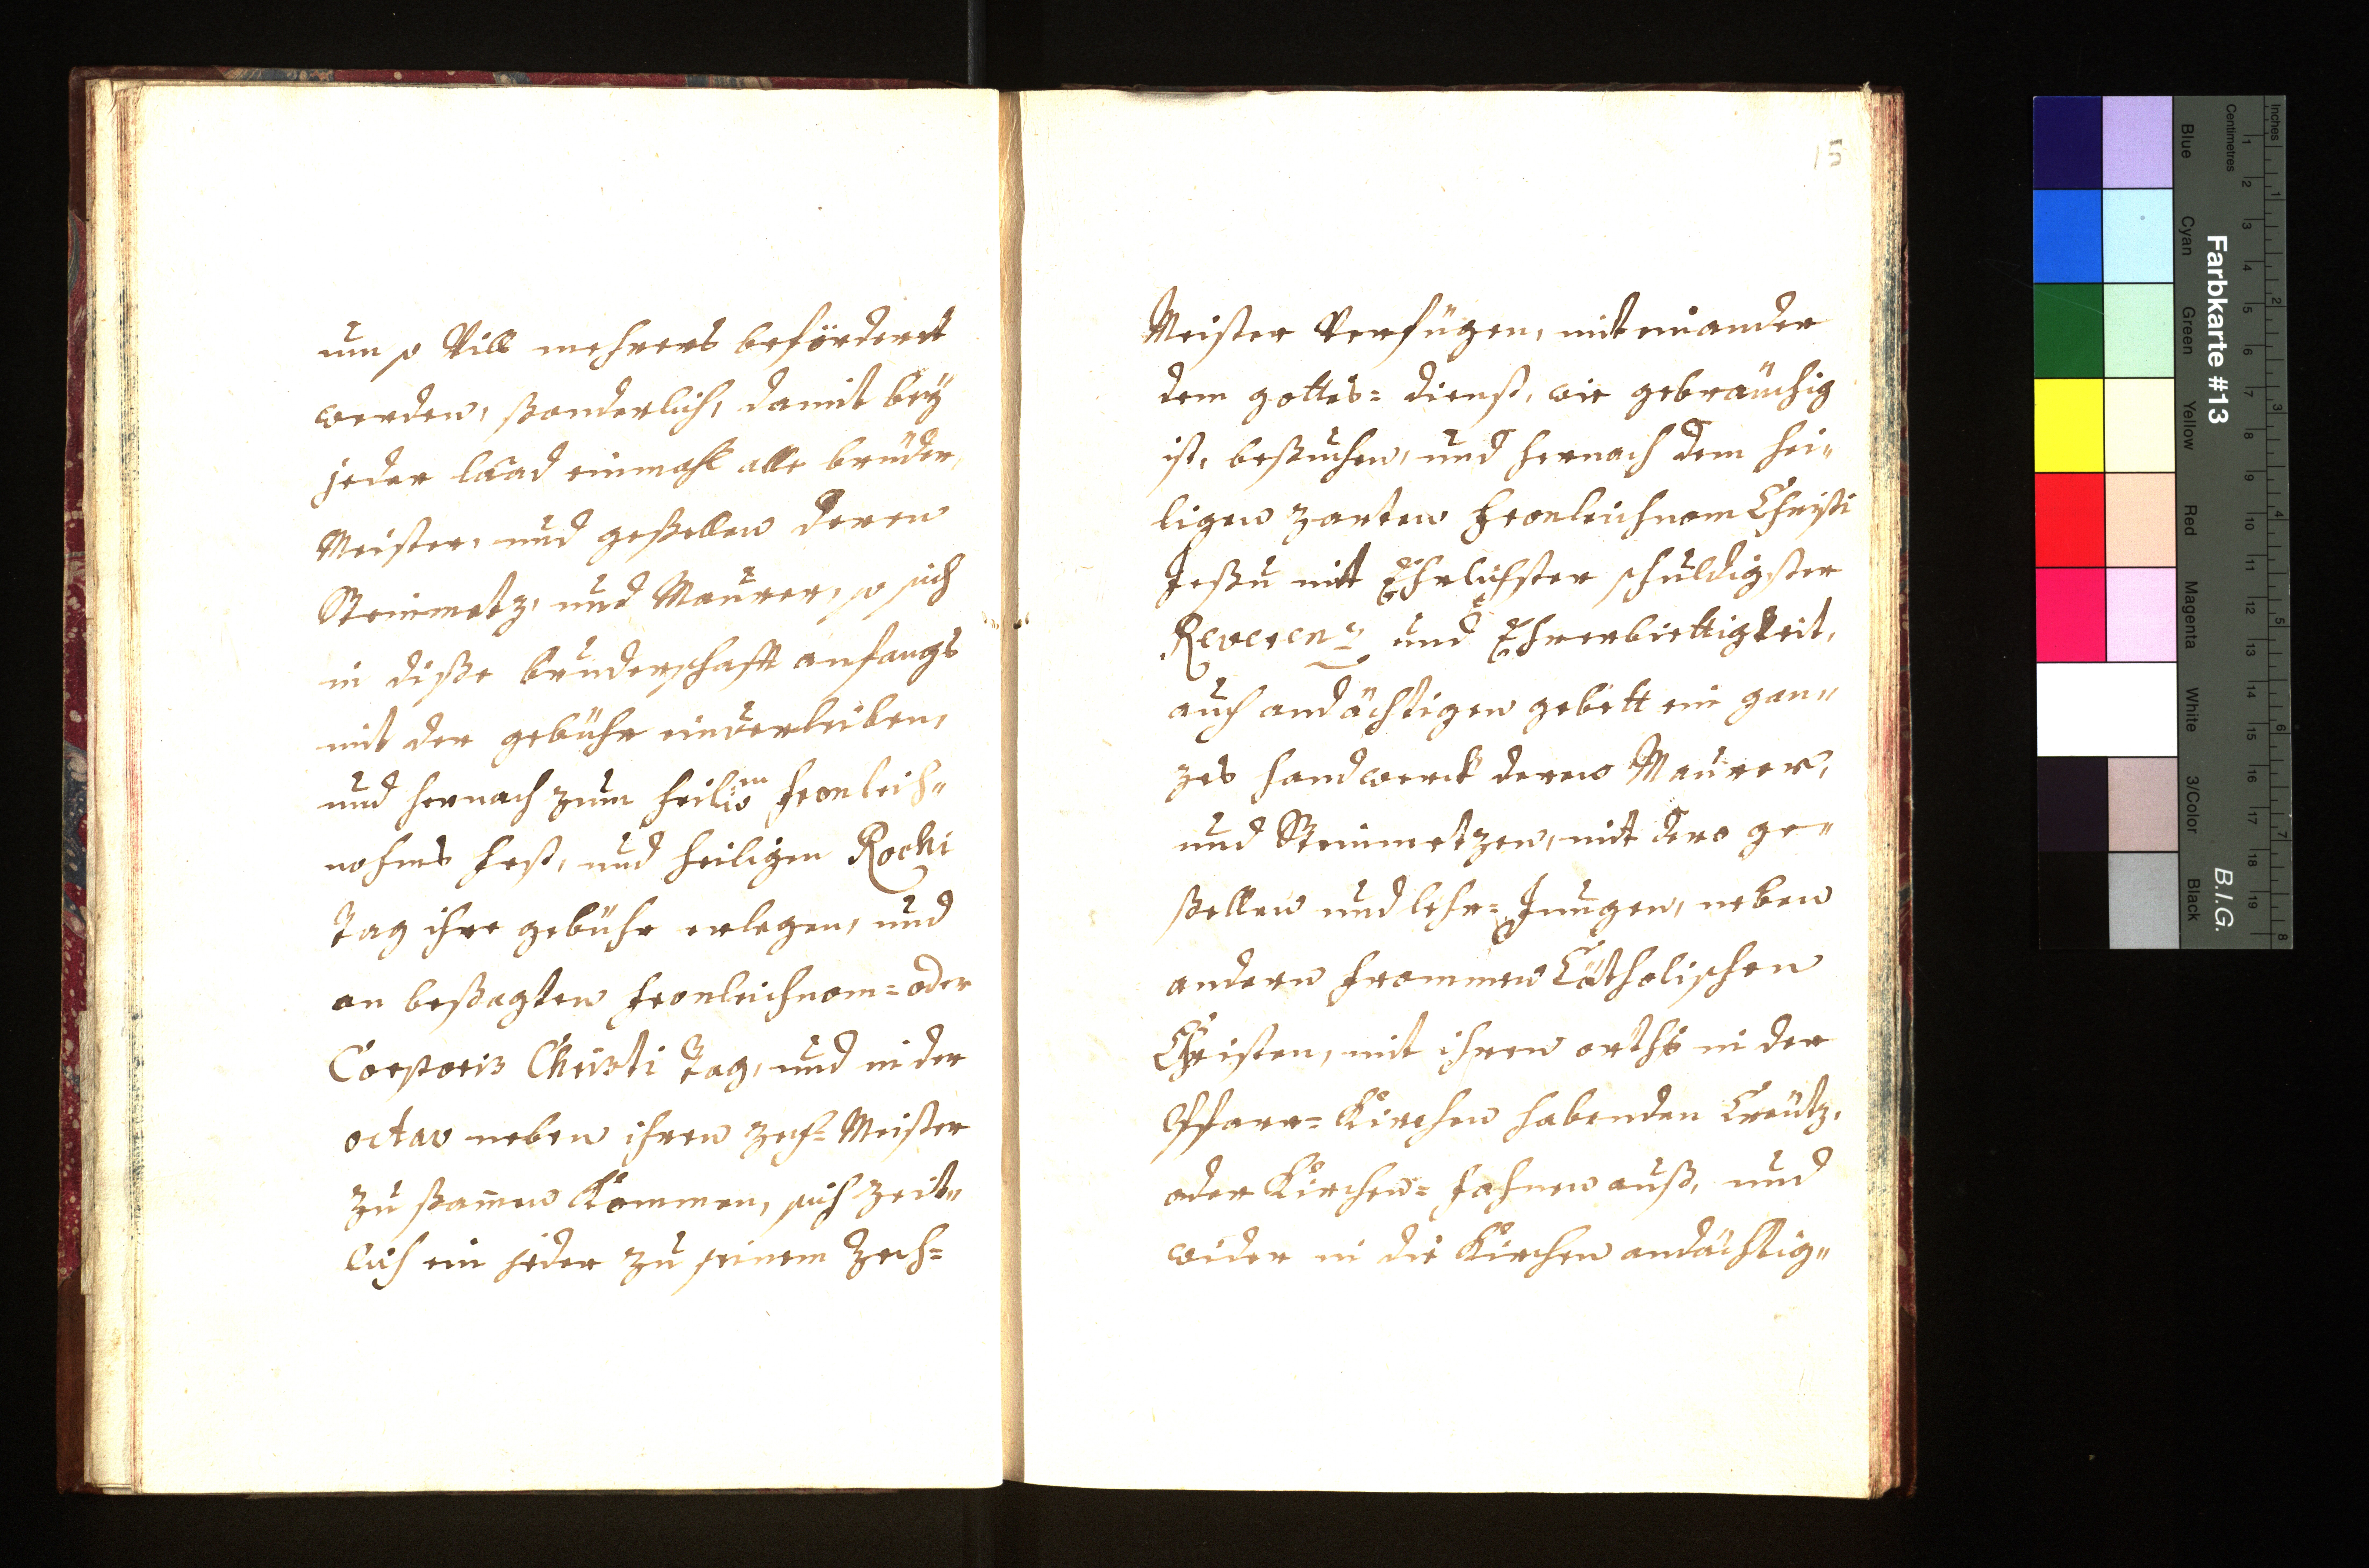 um so Vill mehrers befördert
werden, ßonderlich, damit beÿ
jeder laad einmahl alle brüder,
Meister, und geßellen deren
Steinmetz, und Maurer, so sich
in diße bruderschafft anfangs
mit der gebühr einverleiben,
und hernach zum heilig[en] fronleich„
nahms fest, und heiligen Rochi
Tag ihre gebühr erlegen, und
an beßagten fronleichnam= oder
Corporis Christi Tag, und in der
octav neben ihren zech= Meister
zu ßam̄en kommen, sich zeit„
lich ein jeder zu seinem Zech=
15
Meister Verfügen, mit einander
dem gottes= dienst, wie gebräuchig
ist, beßuchen, und hernach dem hei„
ligen zarten fronleichnam Christi
Jeßu mit Ehrlichster schuldigster
Reverenz und Ehrerbiettigkeit,
auch andächtigen gebett ein gan„
zes handwerck deren Maurer,
und Steinmetzen, mit dero ge„
ßellen und lehr= Jungen, neben
andern frommen Catholischen
Christen, mit ihren orths in der
Pfarr= Kirchen habenden Creütz,
oder Kirchen= fahnen auß, und
wider in die Kirchen andächtig„
Inches
Centimetres
Farbkarte #13
B.I.G.
Blue
Cyan
Green
Yellow
Red
Magenta
White
3/Color
Black
1
2
3
4
5
6
7
8
9
10
11
12
13
14
15
16
17
18
19
1
2
3
4
5
6
7
8